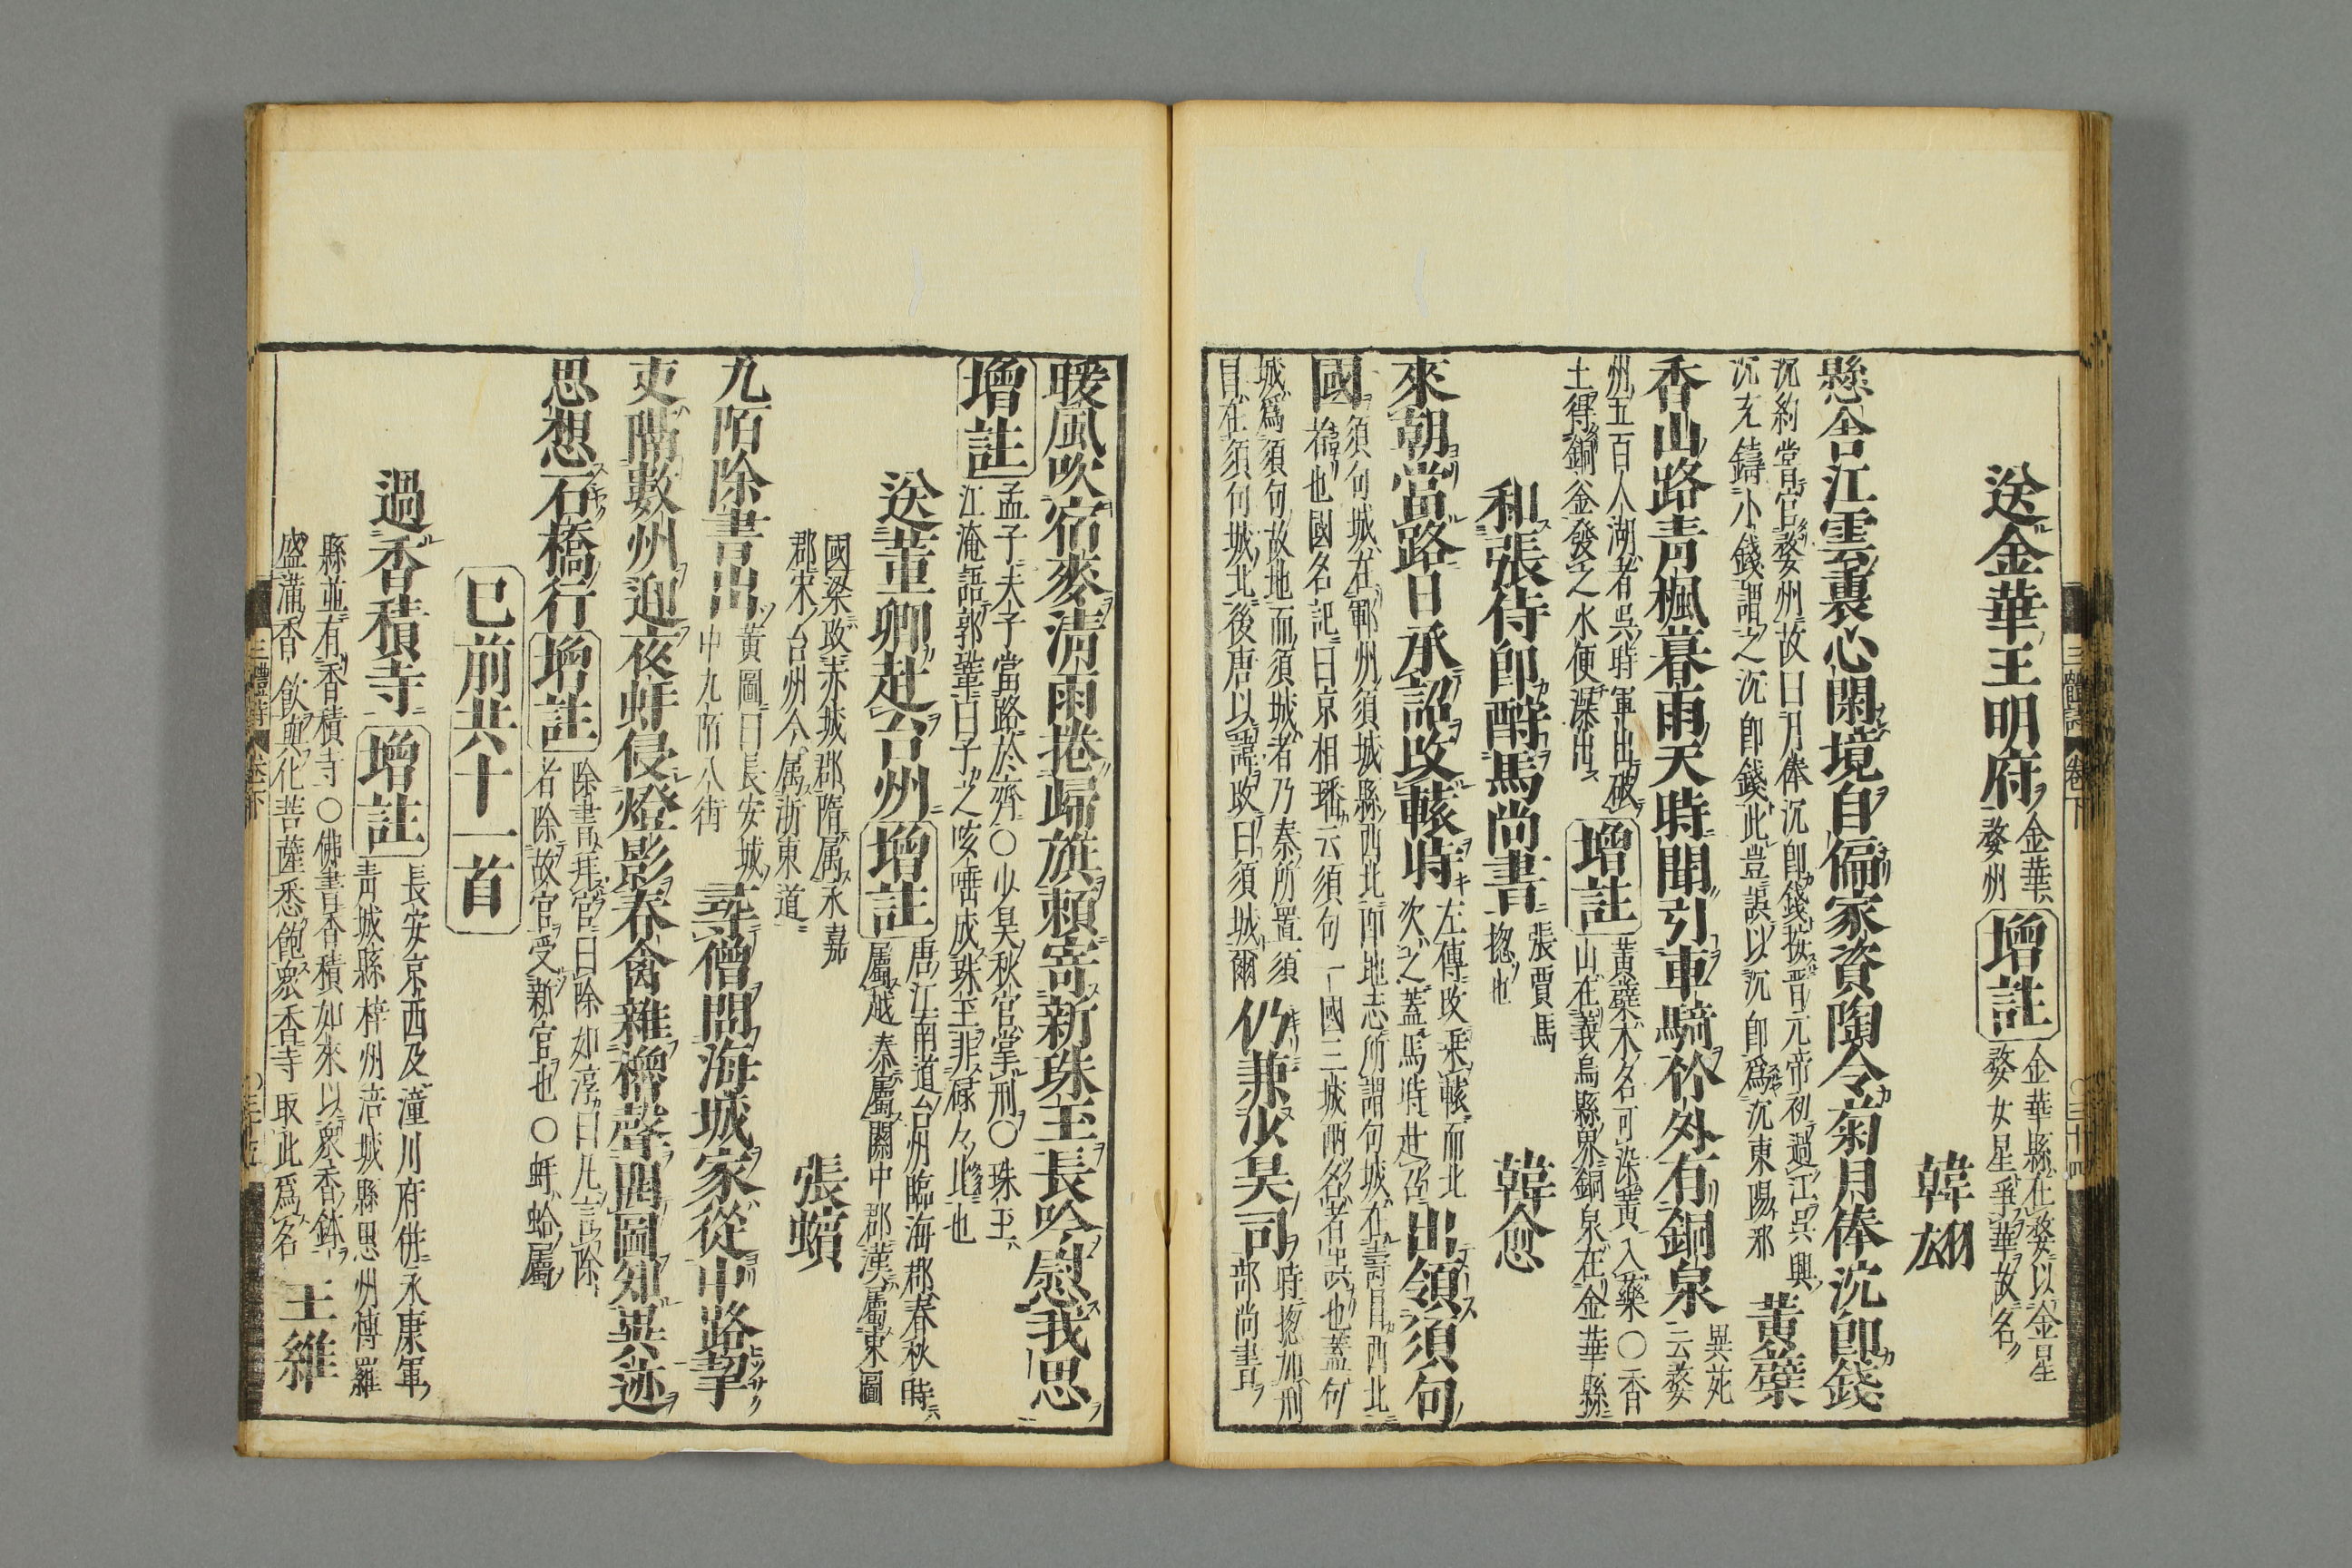 三體詩 卷下
送金華王明府 金華婺州 增註 金華縣在婺以金星婺女星爭華故名
韓翃
縣舍江雲裏心閑境自偏家資陶令菊月俸沈郎錢
沉約嘗官婺州故曰月俸沉郎錢按晉元帝初過江吳興沉充鑄小錢謂之沉郎錢此豈誤以沉郎爲沉東陽邪 黃蘗
香山路青楓暮雨天時聞引車騎竹外有銅泉 異苑云婺
州五百人湖者吳時軍士破土得銅釜發之水便深出 增註 黃蘗木名可染黃入藥○香山在義烏縣界銅泉在金華縣
和張侍郎酧馬尚書 張賈馬揔也 韓愈
來朝當路日承詔改轅時 左傳改乘轅而北次之蓋馬時赴召 出領須句
國 須句城在鄆州須城縣西北 郡地志所謂句城在壽昌西北
城爲須句故地而須城者乃秦所置須昌在須句城北後唐以諱改曰須城爾 仍兼少昊司 時揔加刑部尚書
暖風吹宿麥清雨捲歸旗頼寄新珠玉長吟慰我思
增註 孟子夫子當路於齊○少昊秋官掌刑○珠玉江淹語郭鞏曰子之咳唾成珠玉非碌々比也
送董卿赴台州 增註 唐江南道台州臨海郡春秋時屬越秦屬閩中郡漢屬東甌
國梁改赤城郡隋属永嘉郡宋台州今属浙東道 張蠙
九陌除書出 黃圖曰長安城中九陌八街 尋僧問海城家從中路挈
吏隔數州迎夜蚈侵燈影春禽雜櫓聲四圖知異迹
思想石橋行 增註 除書拜官曰除如淳曰凡言除者除故官受新官也○蚈蛤屬
已前共十一首
過香積寺 增註 長安京西及潼川府併永康軍青城縣梓州涪城縣恩州博羅
縣並有香積寺○佛書香積如來以衆香鉢盛滿香飲與化菩薩悉飽衆香寺取此爲名 王維
三體詩 卷下